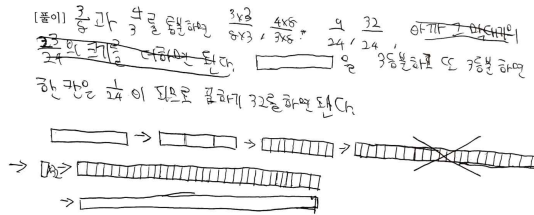 [풀이] 3/8 과 4/3를 통분하면 3×3/8×3, 4×8/3×8 = 9/24, 32/24,
32/24의 크기를 더하면 된다. 을 3등분하고 또 3등분 하면
한 칸은 1/24 이 되므로 곱하기 32를 하면 된다.